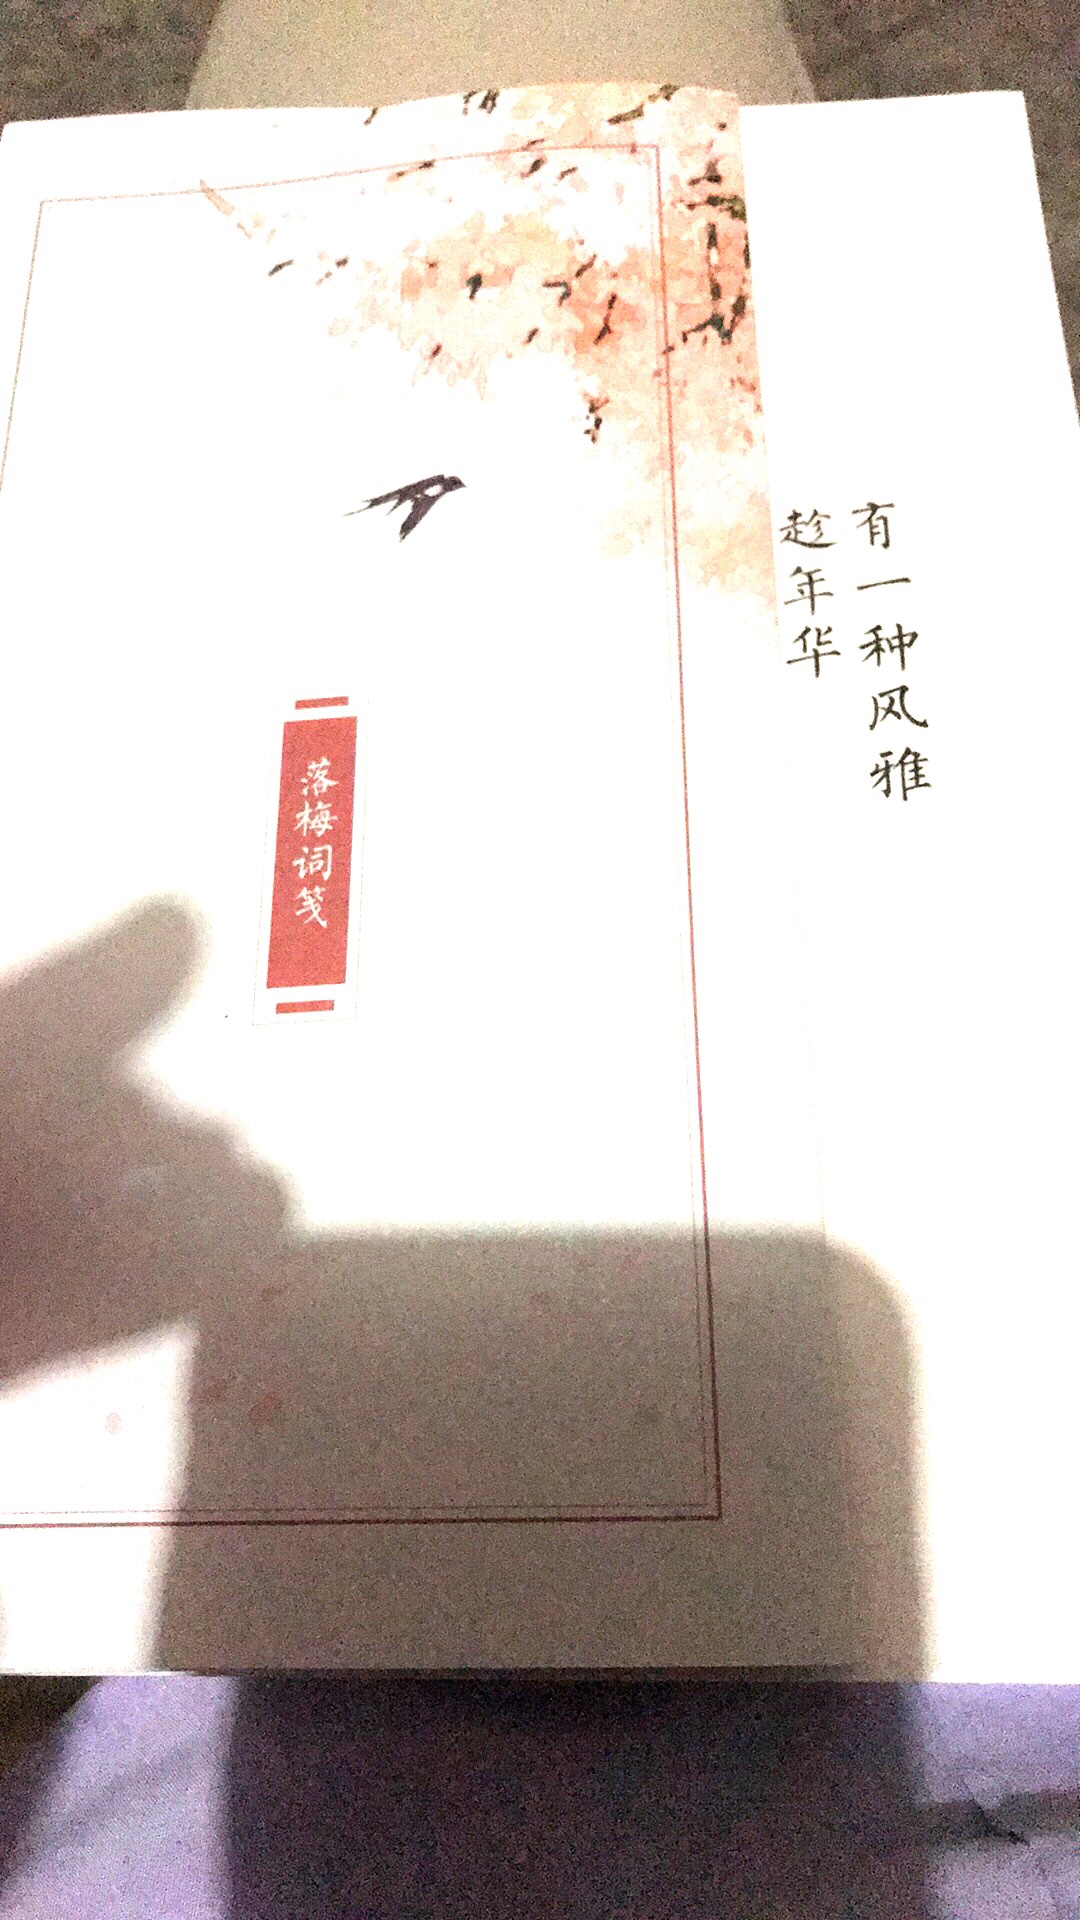 有一种风雅
趁年华
落梅词笺